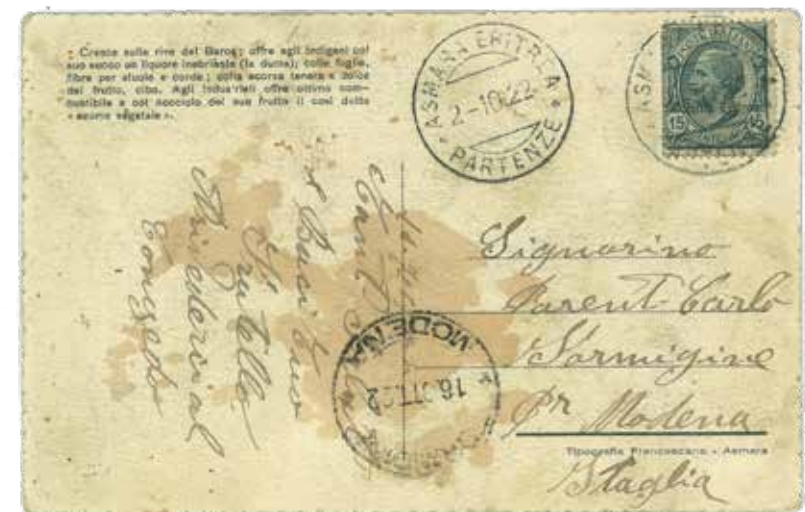 - Cresce sulle rive del Barca; offre agli indigeni col
suo succo un liquore inebriante (la duma); colle foglie,
fibre per stuoie e corde; colla scorza tenera e dolce
del frutto, cibo. Agli industriali offre ottimo com-
bustibile e col nocciolo del suo frutto il così detto
« avorio vegetale ».
ASMARA ERITREA
2-10.22
PARTENZE
ASMA
15
15
Saluti
e Baci tuo
Fratello
Arrivederci al
Congedo
MODENA
16.OTT.22
Signorino
Parenti Carlo
Formigine
Pr Modena
Tipografia Francescana - Asmara
Itaglia